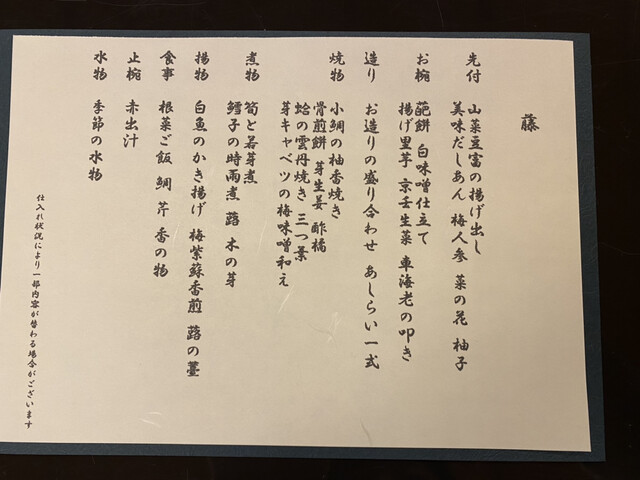 藤
先付 山菜豆富の揚げ出し
美味だしあん 梅人参 菜の花 柚子
お椀 葩餅 白味噌仕立て
揚げ里芋 京壬生菜 車海老の叩き
造り お造りの盛り合わせ あしらい一式
焼物 小鯛の柚香焼き
骨煎餅 芽生姜 酢橘
蛤の雲丹焼き 三つ葉
芽キャベツの梅味噌和え
煮物 筍と若芽煮
鱈子の時雨煮 蕗 木の芽
揚物 白魚のかき揚げ 梅紫蘇香煎 蕗の薹
食事 根菜ご飯 鯛 芹 香の物
止椀 赤出汁
水物 季節の水物
仕入れ状況により一部内容が替わる場合がございます